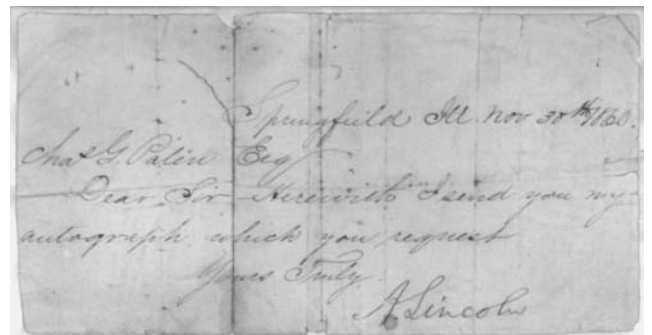 Springfield Ill. Nov 30th 1860.
Chas G. Palin Esq
Dear Sir Herewith I send you my
autograph which you request
Yours Truly
A Lincoln